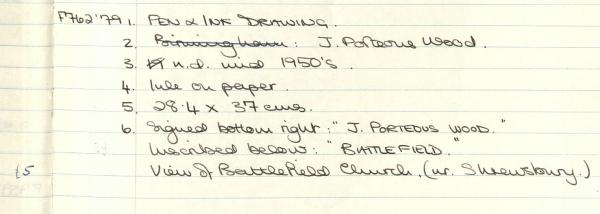 F762'79 1. PEN & INK DRAWING.
2. Birmingham: J. Porteous Wood.
3. n.d. mid 1950's.
4. Ink on paper.
5. 28.4 x 37 cms.
6. Signed bottom right: "J. PORTEOUS WOOD."
Inscribed below: "BATTLEFIELD."
£5 View of Battlefield Church, (nr. Shrewsbury.)